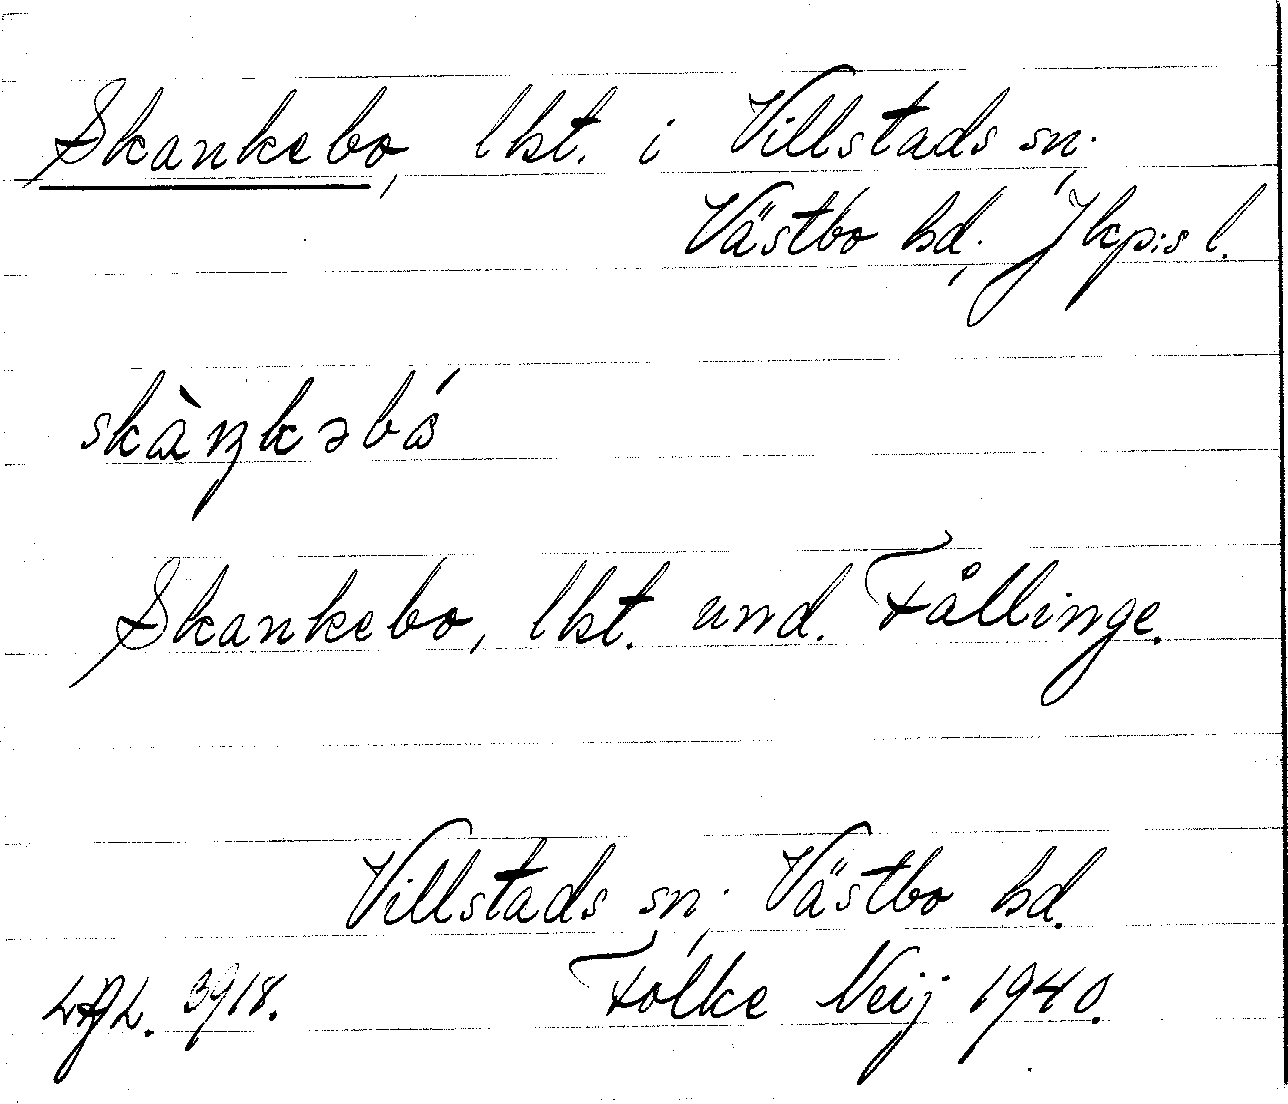 Skankebo, lht. i Villstads sn.
Västbo hd., Jkp:s l.
skànkəbó
Skankebo, lht. und. Fållinge.
Villstads sn., Västbo hd.
3918. Folke Neij 1940.